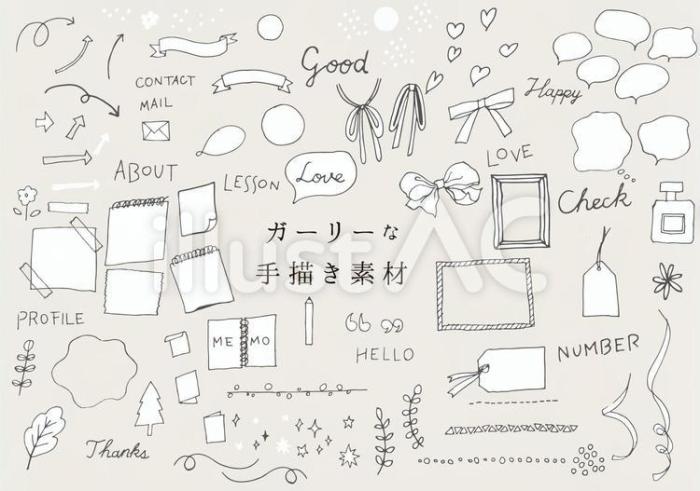 Good
CONTACT
MAIL
Happy
ABOUT
LESSON
Love
LOVE
Check
ガーリーな
手描き素材
illustAC
PROFILE
ME MO
HELLO
NUMBER
Thanks